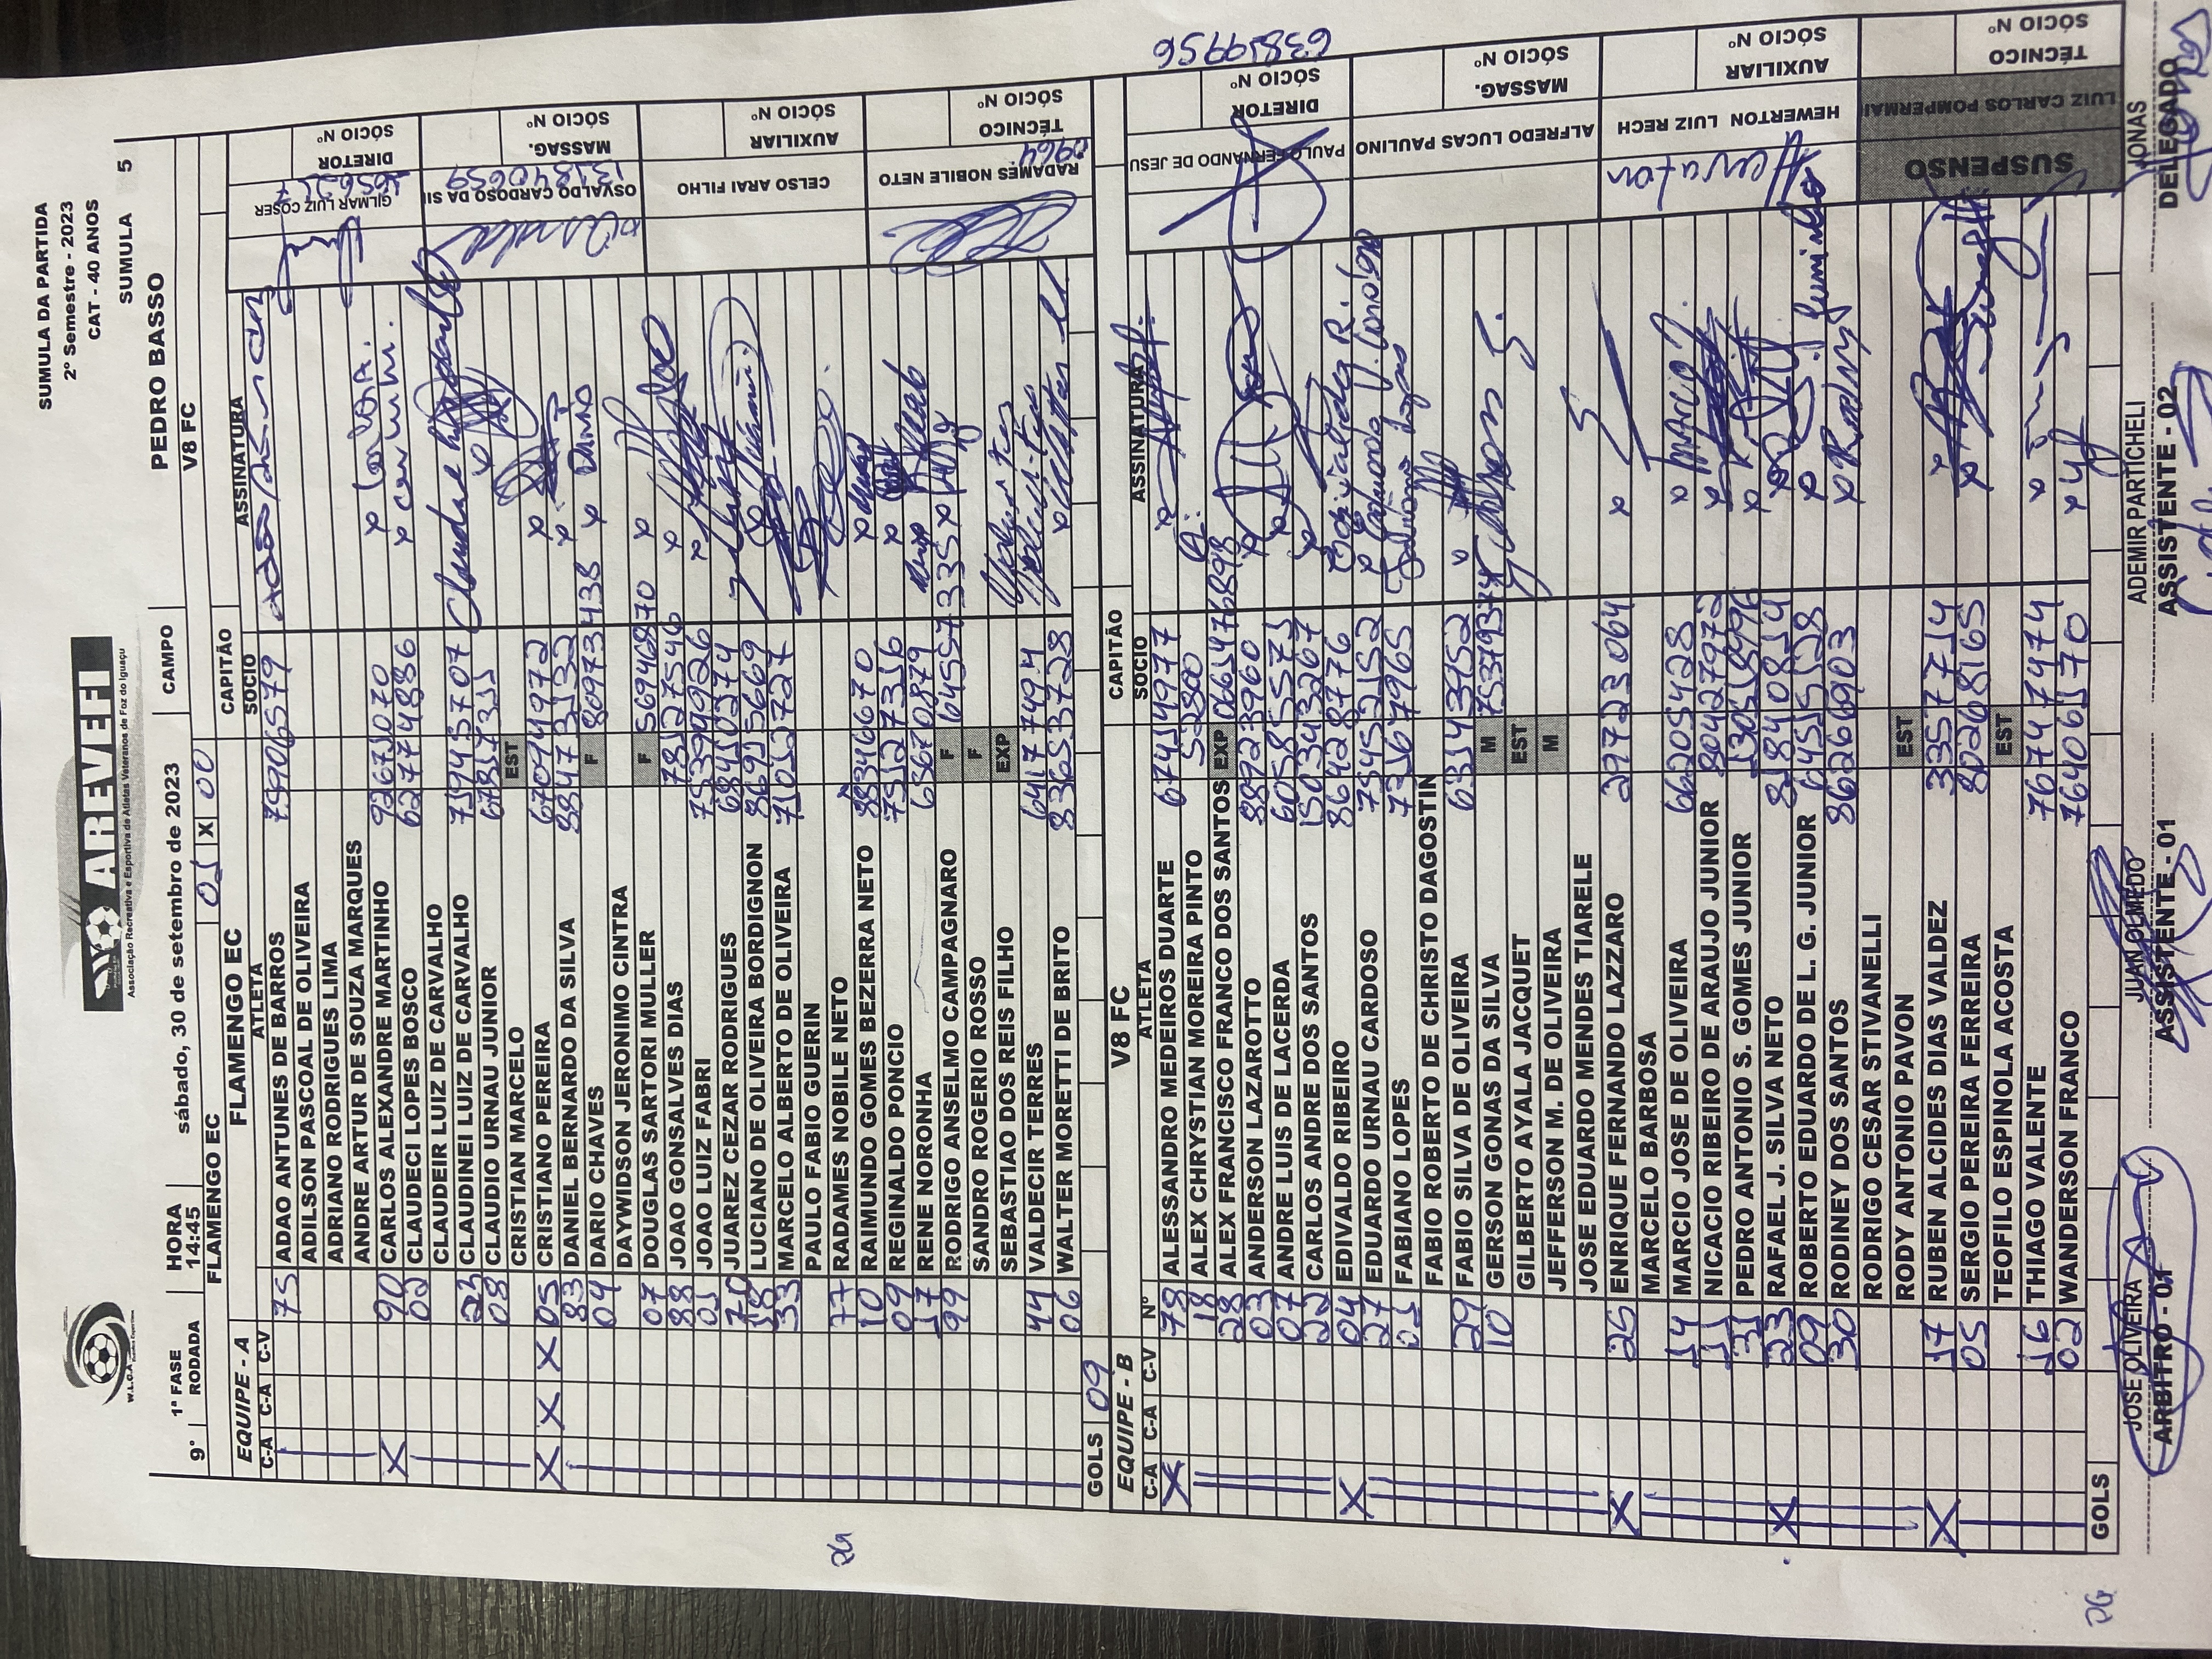 SUMULA DA PARTIDA
2º Semestre - 2023
CAT - 40 ANOS
SUMULA 5
W.L.C.A
AREVEFI
Associação Recreativa e Esportiva de Atletas Veteranos de Foz do Iguaçu
9° 1ª FASE RODADA HORA 14:45 sábado, 30 de setembro de 2023 CAMPO PEDRO BASSO
FLAMENGO EC 01 X 00 V8 FC
EQUIPE - A FLAMENGO EC CAPITÃO
C-A C-A C-V Nº ATLETA SOCIO ASSINATURA
75 ADAO ANTUNES DE BARROS 7590
ADILSON PASCOAL DE OLIVEIRA
ADRIANO RODRIGUES LIMA
ANDRE ARTUR DE SOUZA MARQUES
X 90 CARLOS ALEXANDRE MARTINHO 92671070
02 CLAUDECI LOPES BOSCO 62774886
CLAUDEIR LUIZ DE CARVALHO
23 CLAUDINEI LUIZ DE CARVALHO 759457707
08 CLAUDIO URNAU JUNIOR
CRISTIAN MARCELO EST
X X X 05 CRISTIANO PEREIRA 67094972
83 DANIEL BERNARDO DA SILVA
04 DARIO CHAVES F 80973438
DAYWIDSON JERONIMO CINTRA
07 DOUGLAS SARTORI MULLER F 56946870
88 JOAO GONSALVES DIAS 78127546
01 JOAO LUIZ FABRI
JUAREZ CEZAR RODRIGUES
LUCIANO DE OLIVEIRA BORDIGNON 86915669
33 MARCELO ALBERTO DE OLIVEIRA 71017227
PAULO FABIO GUERIN
77 RADAMES NOBILE NETO
10 RAIMUNDO GOMES BEZERRA NETO 88346670
09 REGINALDO PONCIO 75127316
17 RENE NORONHA 636708791
99 RODRIGO ANSELMO CAMPAGNARO F
SANDRO ROGERIO ROSSO F
SEBASTIAO DOS REIS FILHO EXP
44 VALDECIR TERRES
06 WALTER MORETTI DE BRITO 83653728
GOLS 09
GILMAR LUIZ COSER DIRETOR SÓCIO Nº
OSVALDO CARDOSO DA SI MASSAG. SÓCIO Nº
CELSO ARAI FILHO AUXILIAR SÓCIO Nº
RADAMES NOBILE NETO TÉCNICO SÓCIO Nº
EQUIPE - B V8 FC CAPITÃO
C-A C-A C-V Nº ATLETA SOCIO ASSINATURA
X 78 ALESSANDRO MEDEIROS DUARTE 67414977
18 ALEX CHRYSTIAN MOREIRA PINTO
28 ALEX FRANCISCO FRANCO DOS SANTOS EXP
03 ANDERSON LAZAROTTO 88923960
07 ANDRE LUIS DE LACERDA 60585571
22 CARLOS ANDRE DOS SANTOS 1503433267
X 04 EDIVALDO RIBEIRO 86428776
27 EDUARDO URNAU CARDOSO 75452152
01 FABIANO LOPES 73167965
FABIO ROBERTO DE CHRISTO DAGOSTIN
29 FABIO SILVA DE OLIVEIRA
10 GERSON GONAS DA SILVA M
GILBERTO AYALA JACQUET EST
JEFFERSON M. DE OLIVEIRA M
JOSE EDUARDO MENDES TIARELE
X 25 ENRIQUE FERNANDO LAZZARO 29723064
MARCELO BARBOSA
14 MARCIO JOSE DE OLIVEIRA 66205428
11 NICACIO RIBEIRO DE ARAUJO JUNIOR 80427972
31 PEDRO ANTONIO S. GOMES JUNIOR
X 23 RAFAEL J. SILVA NETO 81840814
09 ROBERTO EDUARDO DE L. G. JUNIOR 64515128
30 RODINEY DOS SANTOS 86266903
RODRIGO CESAR STIVANELLI
RODY ANTONIO PAVON EST
X 17 RUBEN ALCIDES DIAS VALDEZ 33577714
05 SERGIO PEREIRA FERREIRA 80268165
TEOFILO ESPINOLA ACOSTA EST
16 THIAGO VALENTE 76747474
02 WANDERSON FRANCO 76406170
GOLS
PAULO FERNANDO DE JESU DIRETOR SÓCIO Nº
ALFREDO LUCAS PAULINO MASSAG. SÓCIO Nº
HEWERTON LUIZ RECH AUXILIAR SÓCIO Nº
SUSPENSO LUIZ CARLOS POMPERMAI TÉCNICO SÓCIO Nº
JOSE OLIVEIRA JUAN OLMEDO ADEMIR PARTICHELI JONAS
ARBITRO - 01 ASSISTENTE - 01 ASSISTENTE - 02 DELEGADO